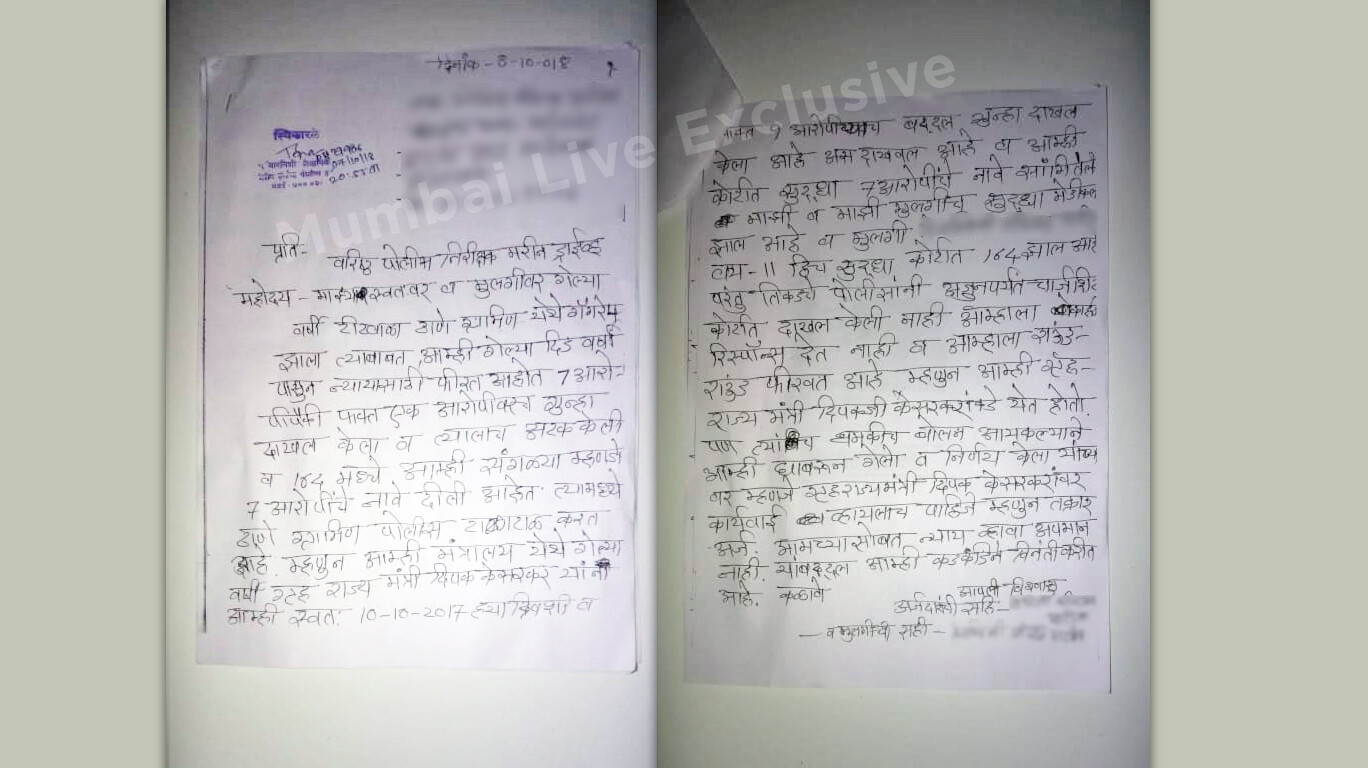 दिनांक - 8-10-018
स्विकारले
07/10/18
20:55
प्रति- वरिष्ठ पोलीस निरीक्षक मरीन ड्राईव्ह
महोदय - माझ्या स्वतःवर व मुलगीवर गेल्या
वर्षी टीटवाळा ठाणे ग्रामिण येथे गँगरेप
झाला त्याबाबत आम्ही गेल्या दिड वर्षा
पासुन न्यायासाठी फीरत आहोत 7 आरो-
पीपैकी फक्त एक आरोपीवरच गुन्हा
दाखल केला व त्यालाच अटक केली
व 164 मध्ये आम्ही सगळ्या म्हणजे
7 आरोपींचे नावे दीली आहेत त्यामध्ये
ठाणे ग्रामिण पोलीस टाळाटाळ करत
आहे. म्हणुन आम्ही मंत्रालय येथे गेल्या
वर्षी गृह राज्य मंत्री दिपक केसरकर यांना
आम्ही स्वत: 10-10-2017 ह्या दिवशी व
Mumbai Live Exclusive
फक्त 1 आरोपीच्याच बद्दल गुन्हा दाखल
केला आहे अस दाखवल आहे व आम्ही
कोर्टात सुद्धा 7 आरोपींचे नावे सांगितले
माझी व माझी मुलगीच सुद्धा मेडीकल
झाल आहे व मुलगी
वय-11 हिच सुद्धा कोर्टात 164 झाल आहे
परंतु तिकडचे पोलीसांनी अजुनपर्यंत चार्जशिट
कोर्टात दाखल केली नाही आम्हाला काही
रिस्पॉन्स देत नाही व आम्हाला राऊंड-
राऊंड फीरवत आहे म्हणुन आम्ही गृह-
राज्य मंत्री दिपकजी केसरकरांकडे येत होतो.
पण त्यांच धमकीच बोलन आयकल्याने
आम्ही घाबरून गेलो व निर्णय केला यांच्या
वर म्हणजे गृहराज्यमंत्री दिपक केसरकरांवर
कार्यवाई व्हायलाच पाहिजे म्हणुन तक्रार
अर्ज. आमच्यासोबत न्याय व्हावा अपमान
नाही. यांबद्दल आम्ही कडकडीने विनंती करीत
आहे. कळावे
आपली विश्वासु
अर्जदाराची सही-
- व मुलगीची सही -